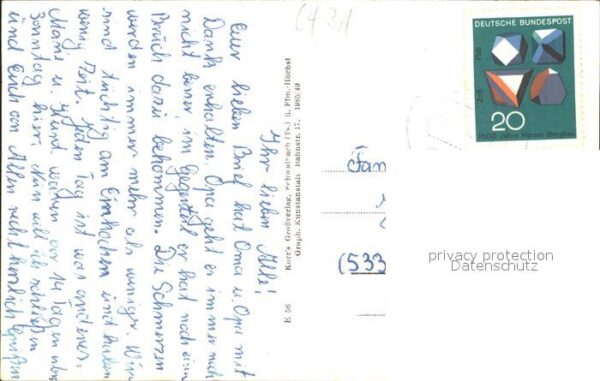 Ihr lieben Alle!
Euer lieben Brief hat Oma u. Opa mit
Dank erhalten. Opa geht es immer noch
nicht besser im Gegenteil er hat noch einen
Bruch dazu bekommen. Die Schmerzen
werden immer mehr als weniger. Wir
sind tüchtig am Einkochen und haben
wenig Zeit. Jeden Tag ist was anderes.
Mane u. Hund waren vor 14 Tagen über
Sonntag hier. Nun will ich schließen
und Euch von Allen recht herzlich grüßen
E 56 Korr's Großverlag, Schwalbach (Ts.) ü. Ffm.-Höchst
Graph. Kunstanstalt Bahnstr. 17. 1985/49
DEUTSCHE BUNDESPOST
PbS
ZnS
20
1000 Jahre Harzer Bergbau
Fam
(533
privacy protection
Datenschutz